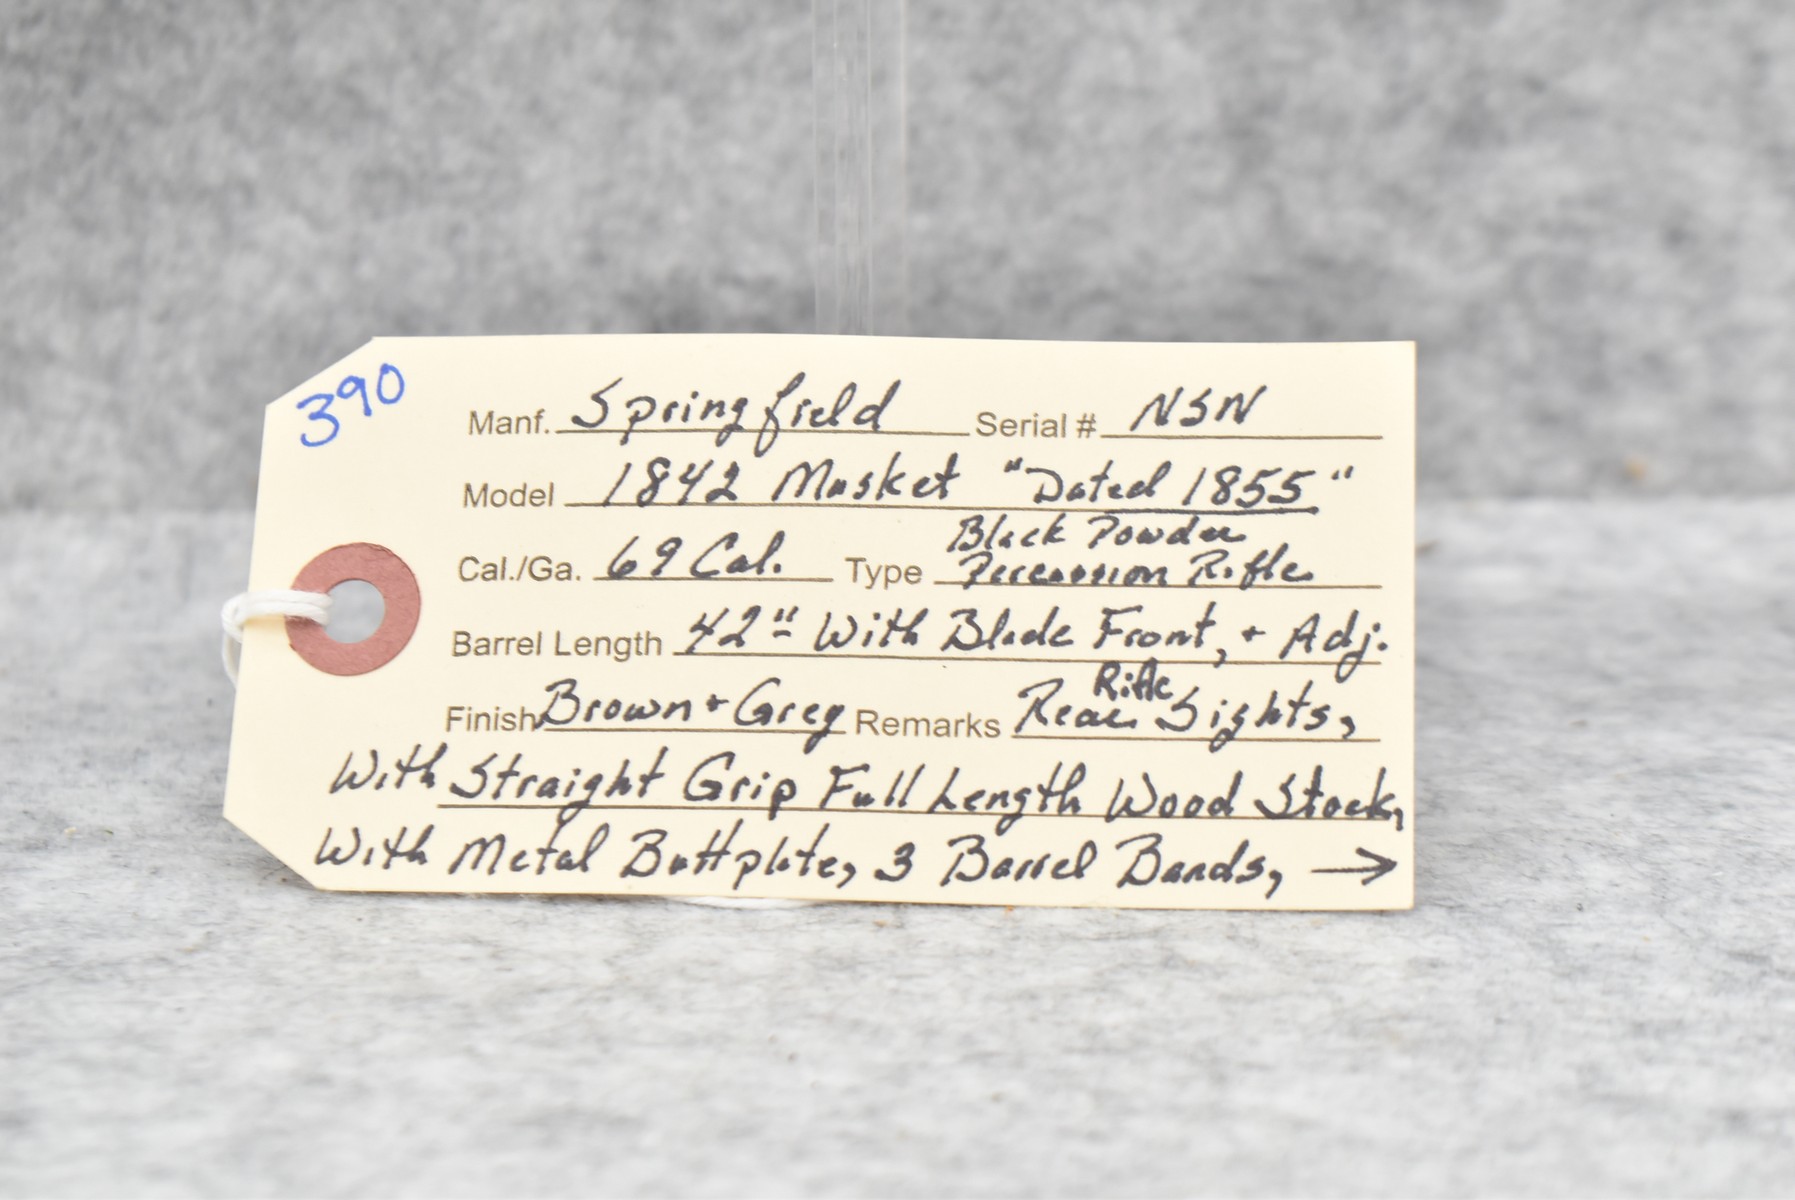 390
Manf. Springfield Serial # NSN
Model 1842 Musket "Dated 1855"
Black Powder
Cal./Ga. 69 Cal. Type Percussion Rifle
Barrel Length 42" With Blade Front, + Adj.
Rifle
Finish Brown + Grey Remarks Rear Sights,
With Straight Grip Full Length Wood Stock,
With Metal Buttplate, 3 Barrel Bands, →